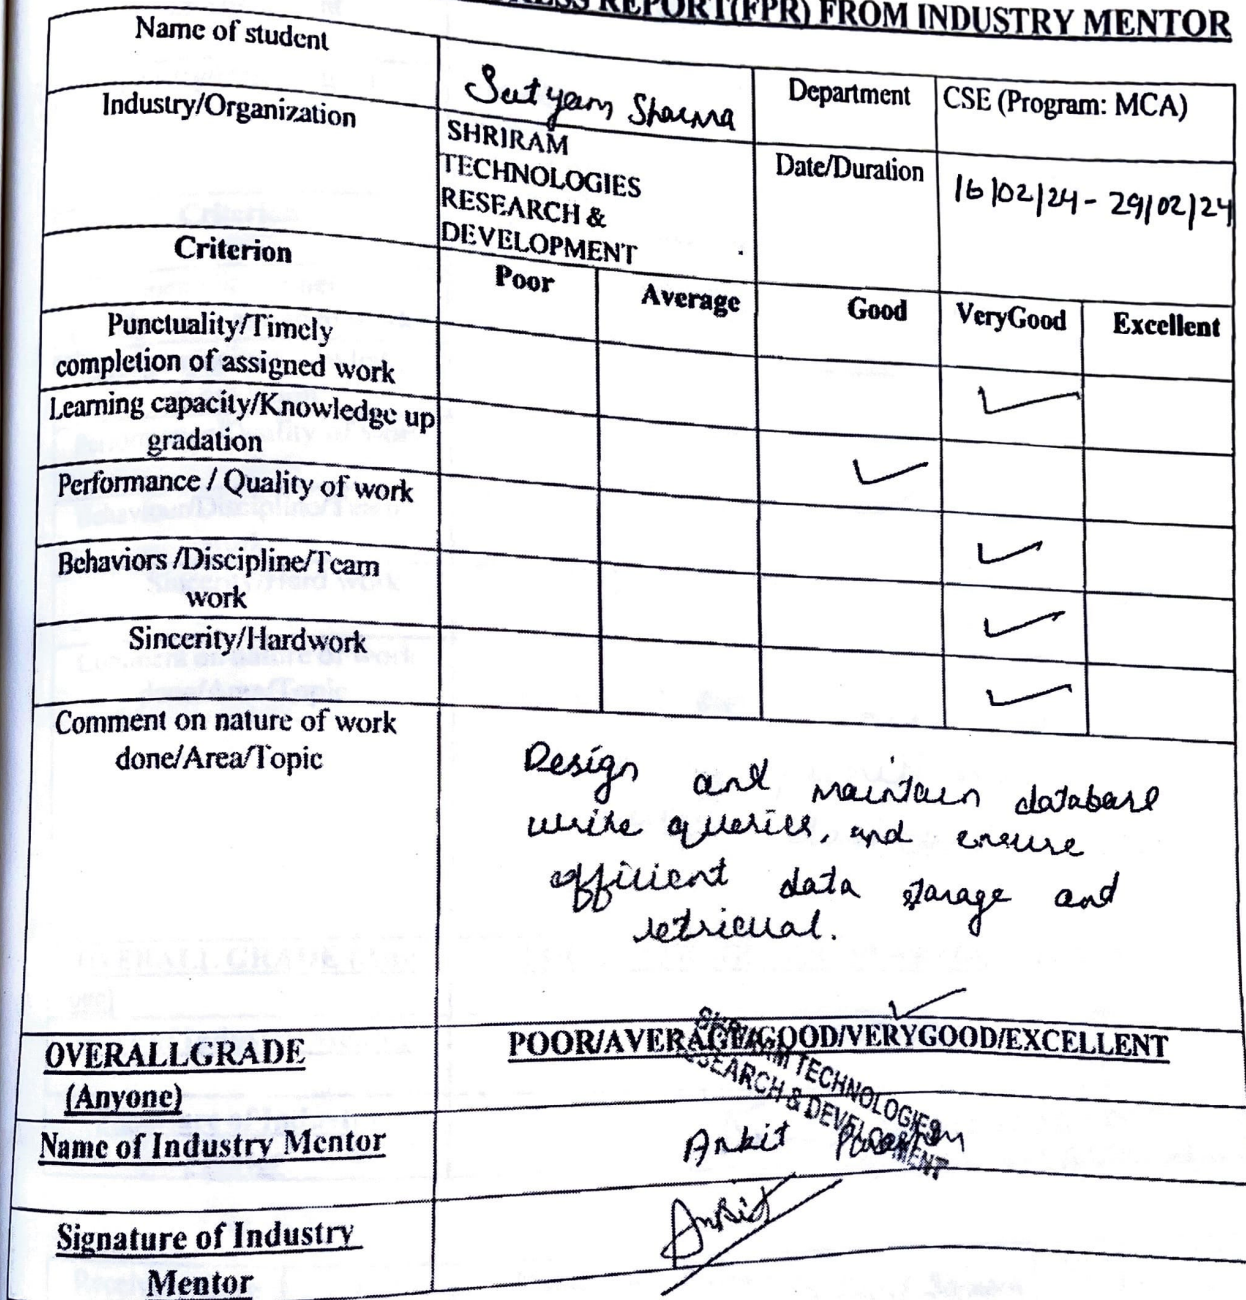 REPORT(FPR) FROM INDUSTRY MENTOR
Name of student
Satyam Sharma
Department
CSE (Program: MCA)
Industry/Organization
SHRIRAM
TECHNOLOGIES
RESEARCH &
DEVELOPMENT
Date/Duration
16/02/24 - 29/02/24
Criterion
Poor
Average
Good
VeryGood
Excellent
Punctuality/Timely
completion of assigned work
✓
Learning capacity/Knowledge up
gradation
✓
Performance / Quality of work
✓
Behaviors /Discipline/Team
work
✓
Sincerity/Hardwork
✓
Comment on nature of work
done/Area/Topic
Design and maintain database
write queries, and ensure
efficient data storage and
retrieval.
✓
OVERALLGRADE
(Anyone)
POOR/AVERAGE/GOOD/VERYGOOD/EXCELLENT
SHRIRAM TECHNOLOGIES
RESEARCH & DEVELOPMENT
Name of Industry Mentor
Ankit
Signature of Industry
Mentor
Ankit